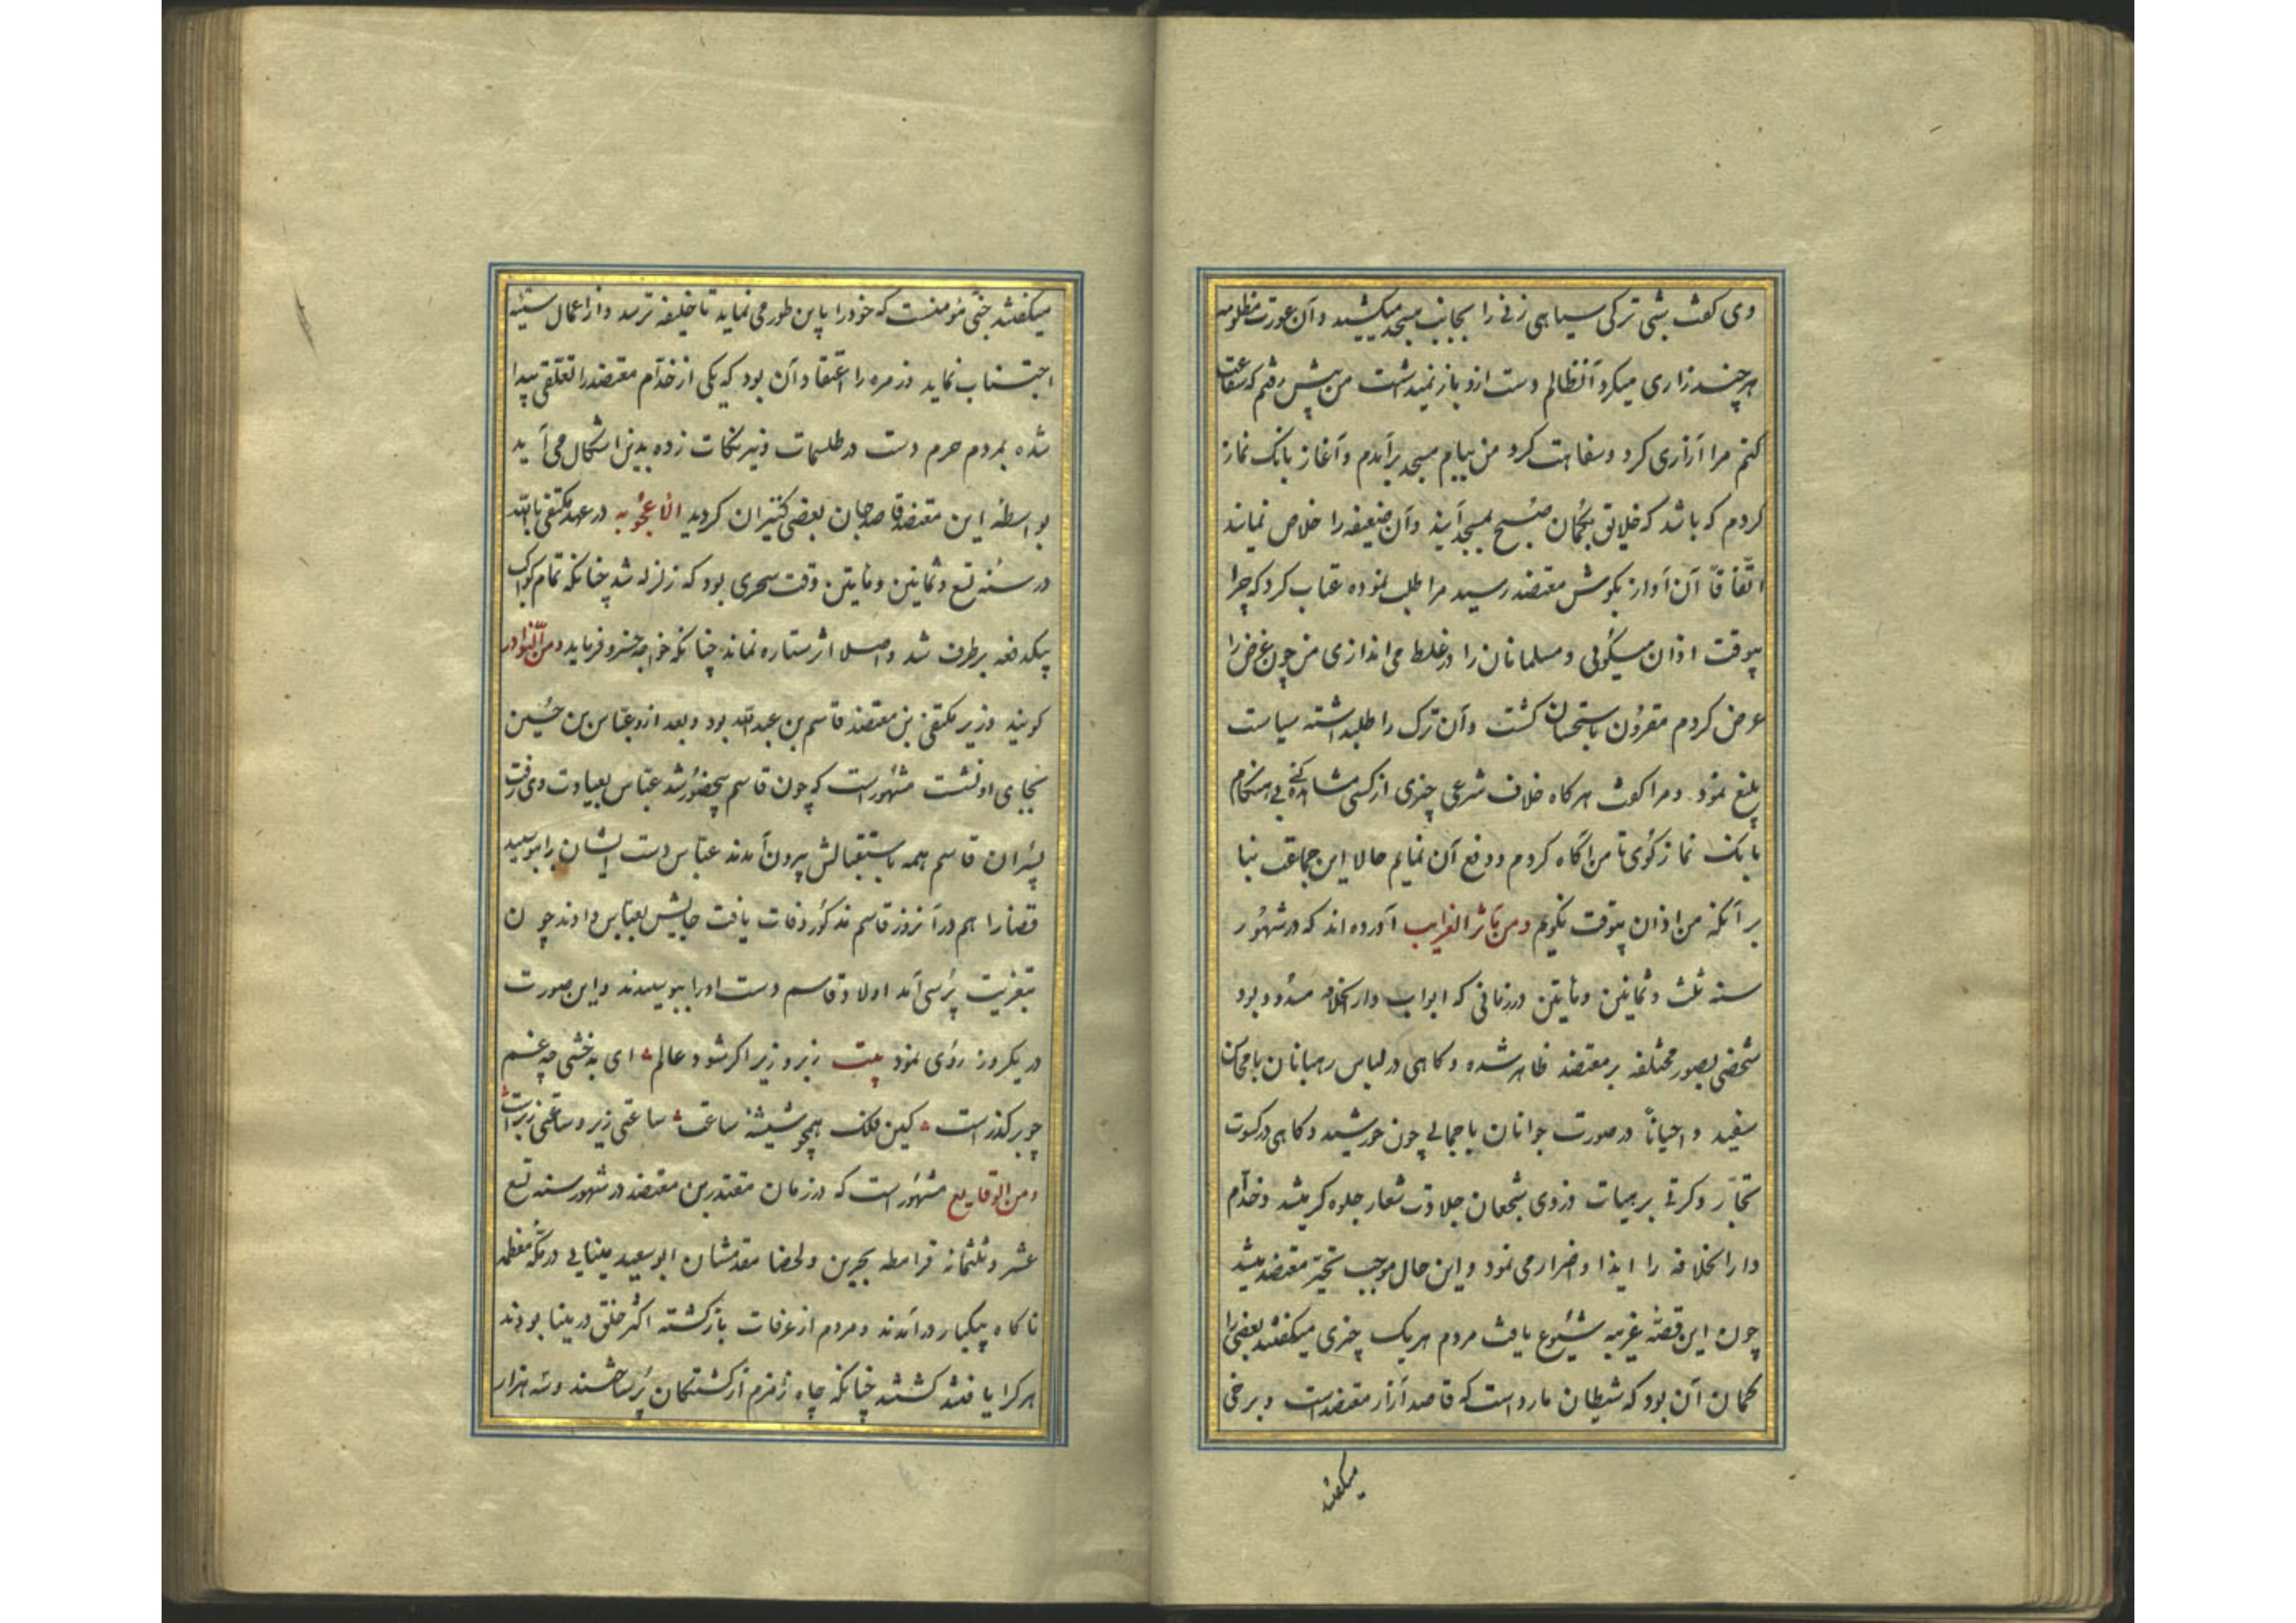 وی کفت شبی ترکی سپاهی زنی را بجانب مسجد میکشید و آن عورت مظلومه
هر چند زاری میکرد آنظالم دست ازو باز نمیداشت من پیش رفتم که شفاعت
کنم مرا آزاری کرد و سفاهت کرد من ببام مسجد برآمدم و آغاز بانک نماز
کردم که باشد که خلایق بکمان صبح بمسجد آیند و آن ضعیفه را خلاص نمایند
اتّفاقاً آن آواز بکوش معتضد رسید مرا طلب نموده عتاب کرد که چرا
بیوقت اذان میکوئی و مسلمانان را در غلط می اندازی من چون غرض را
عرض کردم مقرون باستحسان کشت و آن ترک را طلبداشته سیاست
بلیغ نمود و مرا کفت هر کاه خلاف شرعی چیزی از کسی مشاهده کنی بی هنکام
بانک نماز کوی تا من آکاه کردم و دفع آن نمایم حالا این جماعت بنا
بر آنکه من اذان بیوقت نکویم ومن مآثر الغرایب آورده اند که در شهور
سنه ثلث و ثمانین و مأیتین در زمانی که ابواب دار الخلافه مسدود بود
شخصی بصور مختلفه بر معتضد ظاهر شده و کاهی در لباس رهبانان با محاسن
سفید و احیاناً در صورت جوانان با جمالی چون خورشید و کاهی در کسوت
تجّار و کرتی بر هیات و زی شجعان جلادت شعار جلوه کر میشد و خدّام
دار الخلافه را ایذا و اضرار می نمود و این حال موجب تحیّر معتضد میشد
چون این قصّه غریبه شیوع یافت مردم هر یک چیزی میکفتند بعضی را
کمان آن بود که شیطان مارد است که قاصد آزار معتضد است و برخی
میکفتند
میکفتند جنّی مؤمنست که خود را باین طور می نماید تا خلیفه ترسد و از اعمال سیّئه
اجتناب نماید و زمره را اعتقاد آن بود که یکی از خدّام معتضد را تعلّقی پیدا
شده بمردم حرم دست در طلسمات و نیرنکات زده بدین اشکال می آید
بواسطه این معتضد قاصد جان بعضی کنیزان کردید الاعجوبه در عهد مکتفی بالله
در سنه تسع و ثمانین و مأیتین وقت سحری بود که زلزله شد چنانکه تمام کواکب
بیکدفعه برطرف شد و اصلا اثر ستاره نماند چنانکه خواجه خسرو فرماید ومن النّوادر
کویند وزیر مکتفی بن معتضد قاسم بن عبدالله بود و بعد ازو عبّاس بن حسین
بجای او نشست مشهور است که چون قاسم رنجور شد عبّاس بعیادت وی رفت
پسران قاسم همه باستقبالش بیرون آمدند عبّاس دست ایشان را ببوسید
قضا را هم در آنروز قاسم مذکور وفات یافت جایش بعبّاس دادند چون
بتعزیت پرسی آمد اولاد قاسم دست او را ببوسیدند و این صورت
در یکروز روی نمود بیت زبر و زیر اکر شود عالم ای بدخشی چه غم
چو بر کذر است کین فلک همچو شیشهٔ ساعت ساعتی زیر و ساعتی زبر است
ومن الوقایع مشهور است که در زمان مقتدر بن معتضد در شهور سنه تسع
عشر و ثلثمائه قرامطه بحرین و لحضا مقدمشان ابوسعید بینایی در مکّه معظمه
ناکاه بیکبار درآمدند و مردم از عرفات بازکشته اکثر خلق در مینا بودند
هر کرا یافتند کشتند چنانکه چاه زمزم از کشتکان پر ساختند و سه هزار